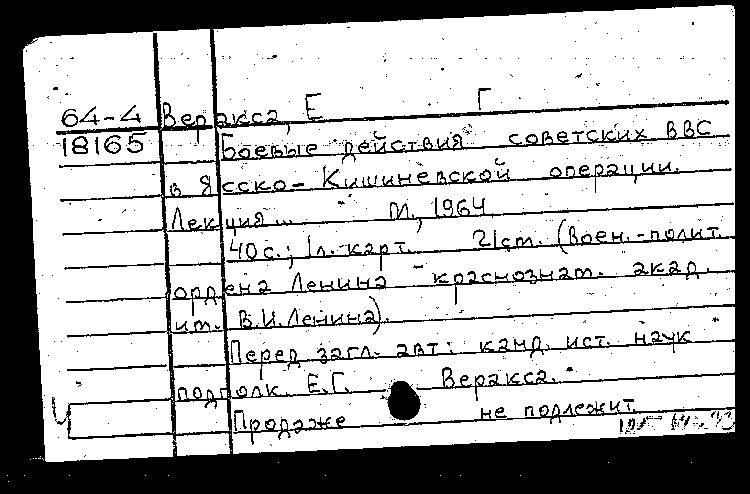 64-4 Веракса, Е Г
18165 Боевые действия советских ВВС
в Ясско-Кишиневской операции.
Лекция... М., 1964
40с.; 1л. карт. 21см. (Воен.-полит.
ордена Ленина краснознам. акад.
им. В.И.Ленина).
Перед загл. авт: канд. ист. наук
подполк. Е.Г. Веракса.
Продаже не подлежит.